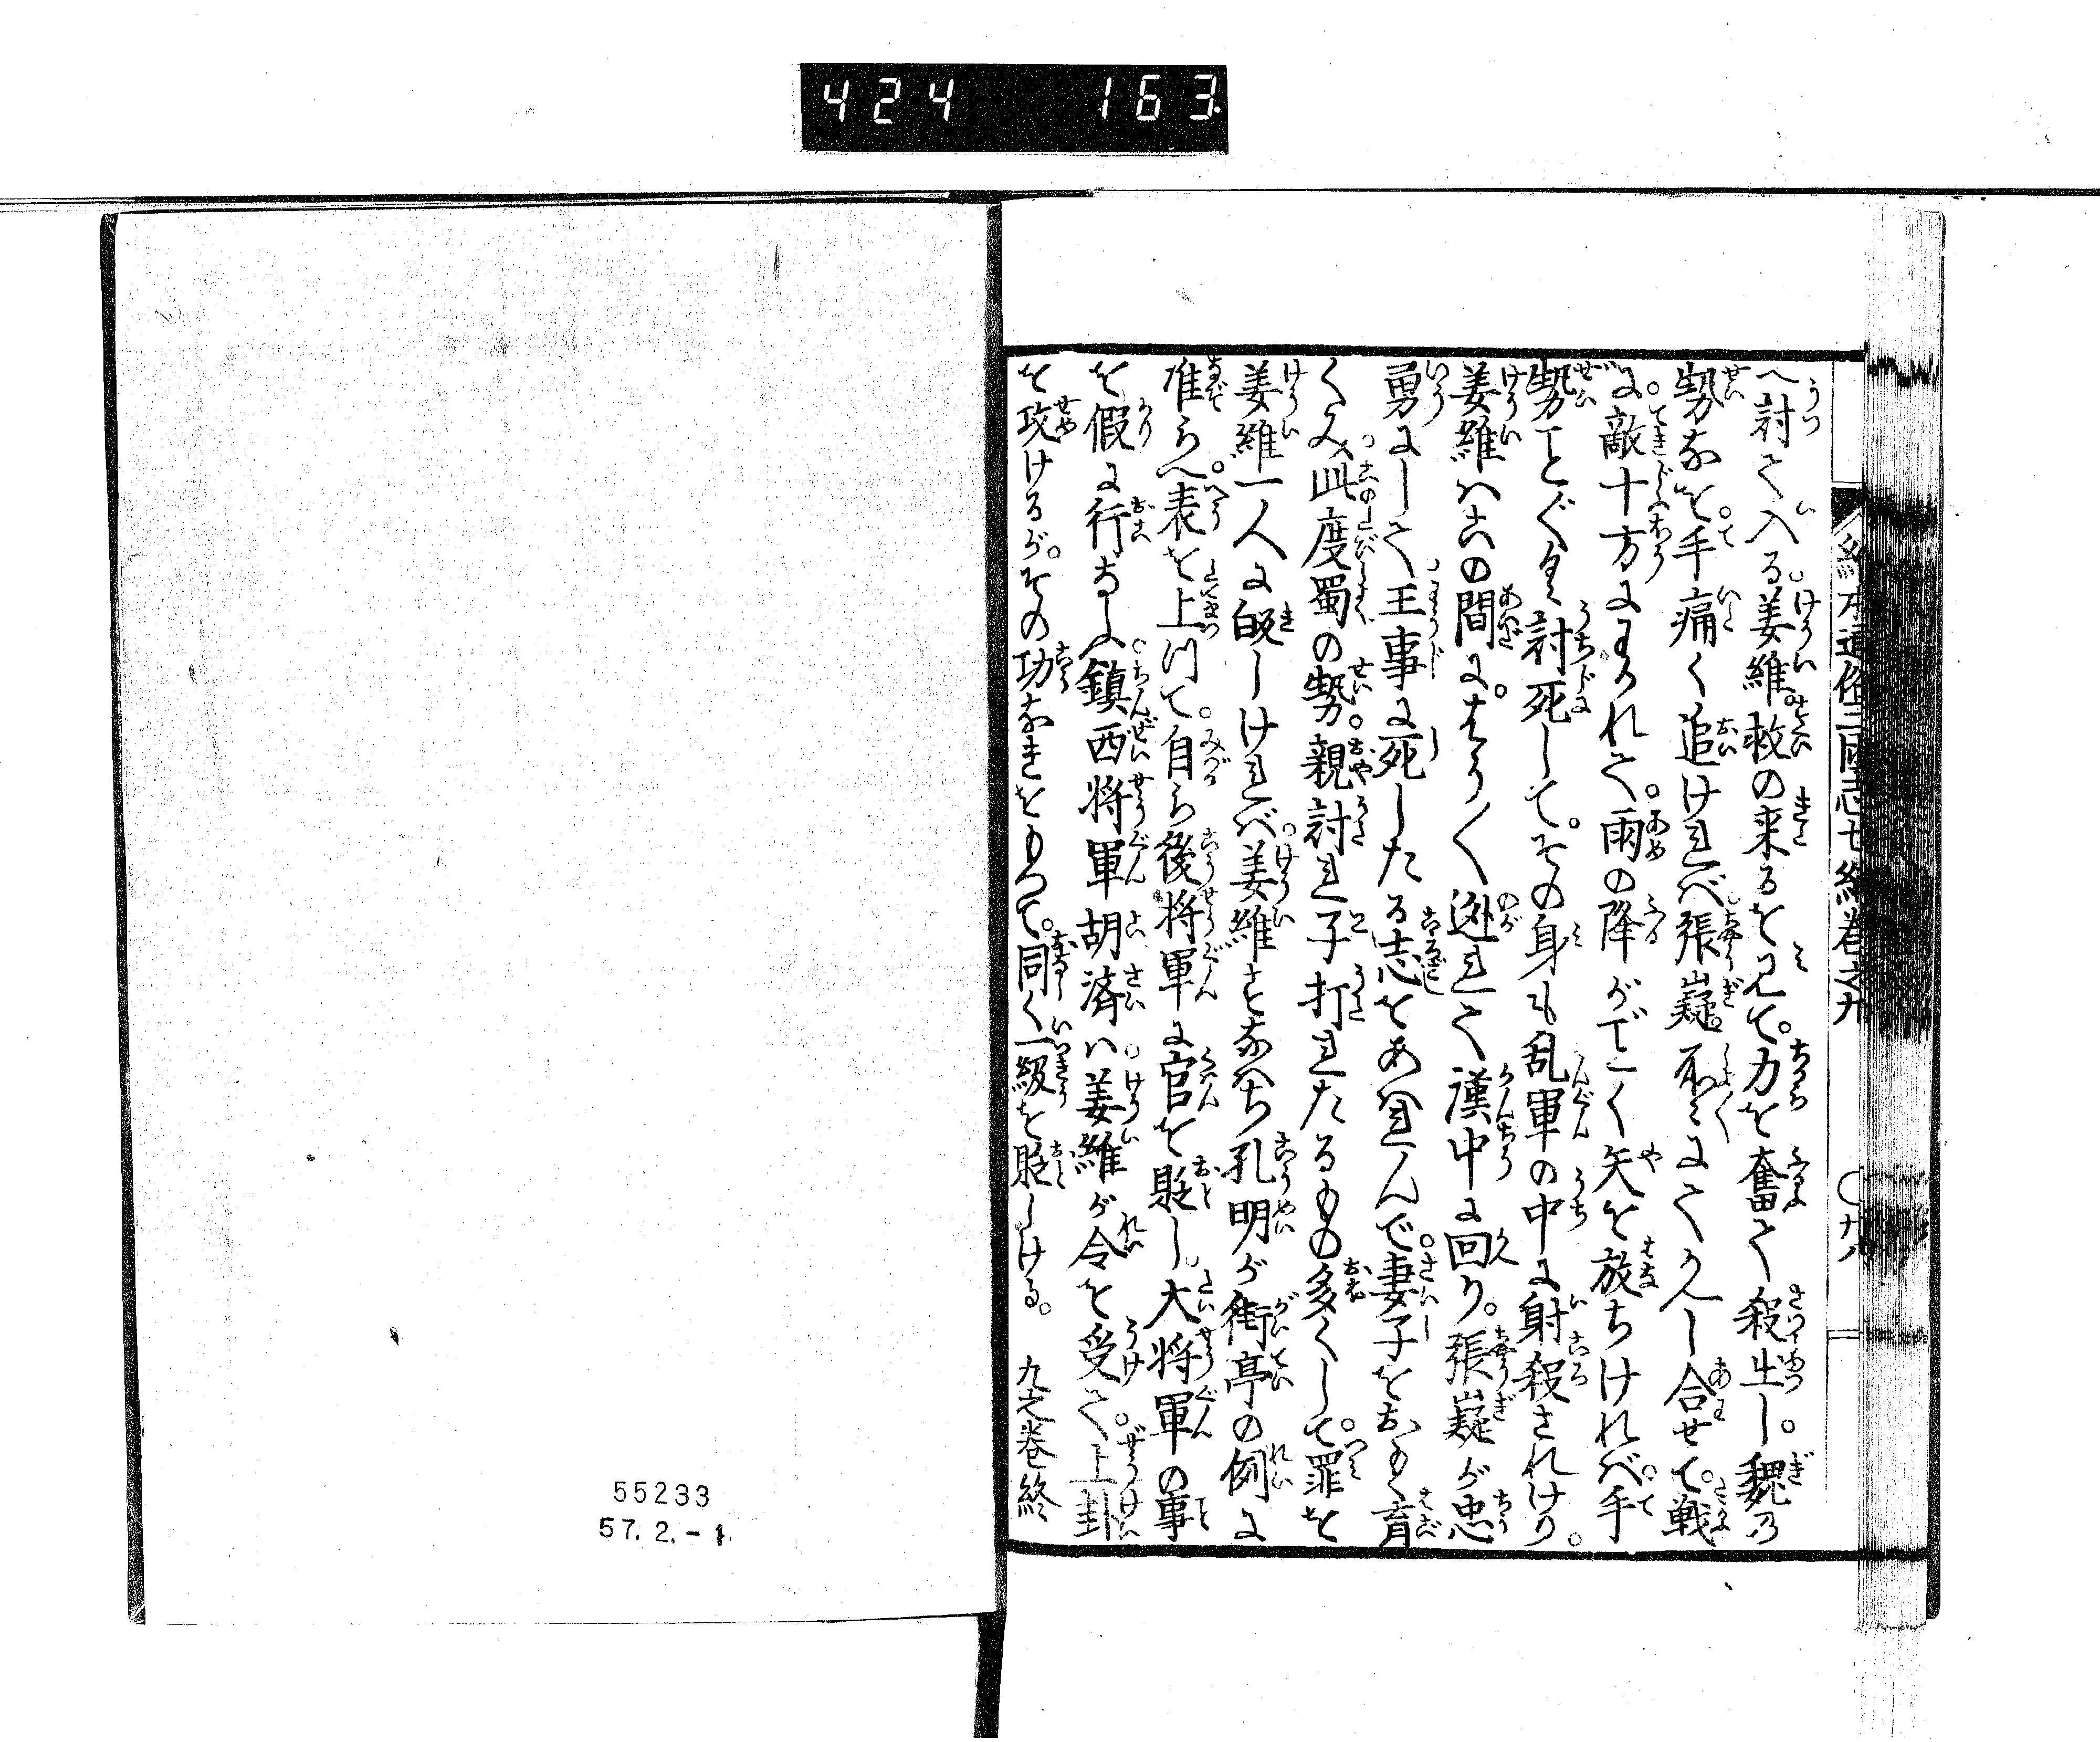 424 163
絵本通俗三国志七編巻之九
へ討て入る姜維。救の来るを見て。力を奮て殺出し。魏の
勢なを。手痛く追ければ張嶷。不意にて
に。敵十方にまれて。雨の降がごとく矢を放ちければ。手
勢ことごとく討死して。その身も乱軍の中に射殺されけり。
姜維ハ此の間に。やう〱逃れて漢中に回り。張嶷が忠
勇にして王事に死したる志をあはれんで。妻子をおもく育
くみ。此度蜀の勢。親討れ子打れたるもの多くして。罪を
姜維一人に皈しければ。姜維すなはち孔明が街亭の例に
准らへ。表を上りて。自ら後将軍に官を貶し。大将軍の事
を假に行なふ。鎮西将軍胡済ハ。姜維が令を受て。上卦
を攻けるが。その功なきをもつて。同く一級を貶しける。 九之巻終
55233
57.2.-1